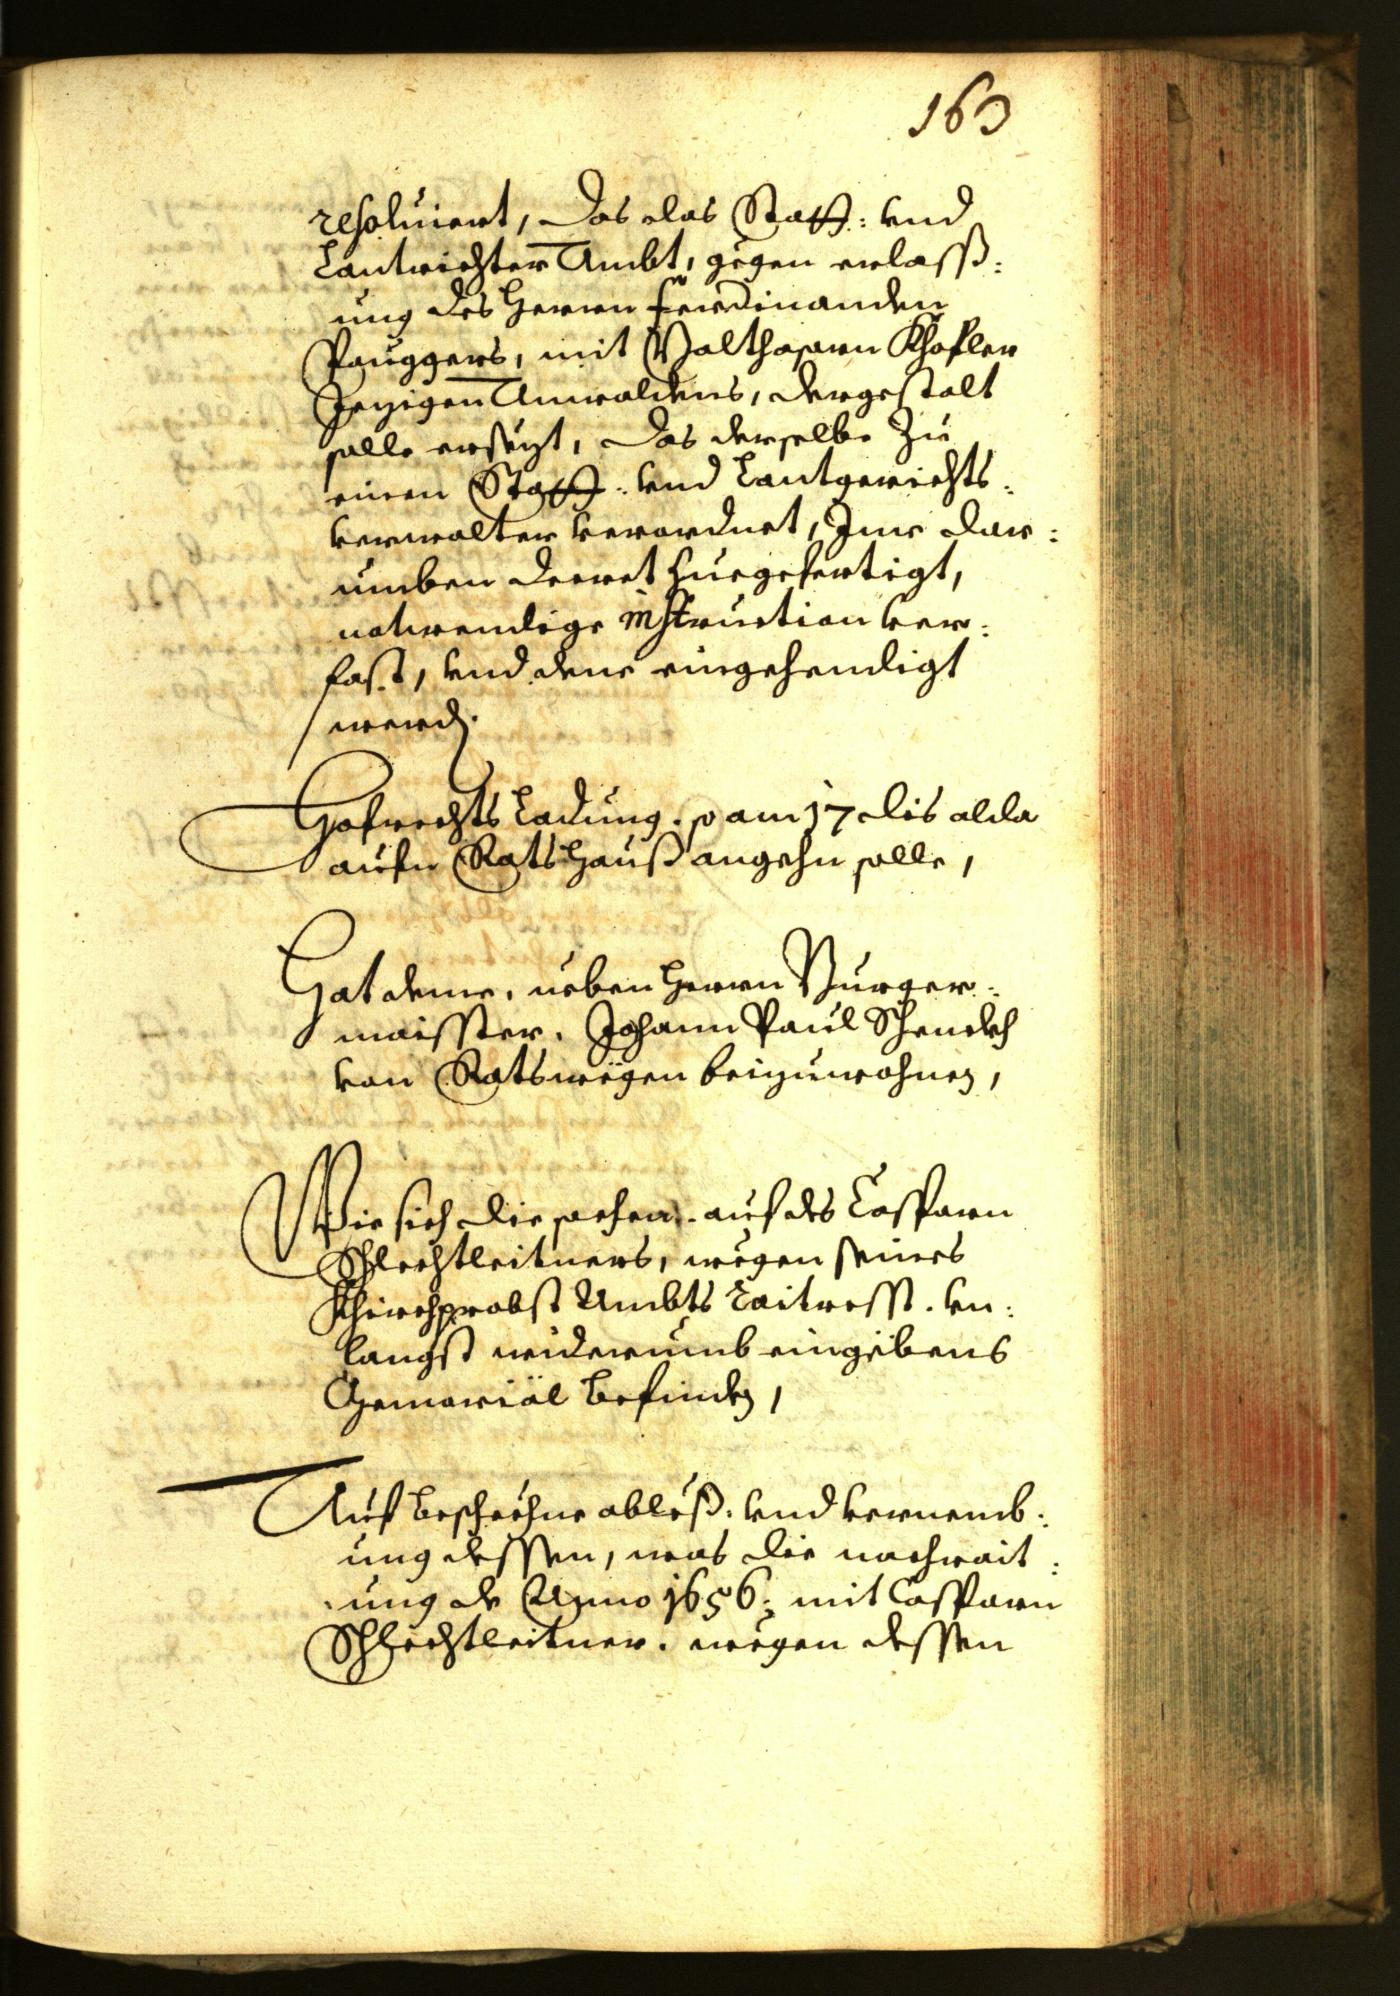 163
resolviert, das das Statt: vnd
Lantrichter Ambt, gegen erlass:
ung des Herrn Ferdinanden
Pauggers, mit Balthasarn Khofler
Jezigen Anwaldens, dergestalt
solle ersezt, das derselbe zu
einen Statt: vnd Lantgerichts:
verwalter verordnet, Ime dar:
umben decret zuegefertigt,
notwendige instruction ver:
fast, vnd deme eingehendigt
werdn.
Hofrechts Ladung. so am 17 dis alda
aufn Rats Hauß angehn solle,
Hat deme, neben Herrn Burger:
maisster, Johann Paul Schenckh
von Ratswegen beizuwohnen,
Wie sich die sachen auf des Casparn
Schlechtleitners, wegen seines
Khirchprobst Ambts Raitresst. vn:
langst widerumb eingebens
Memorial befinden,
Auf beschechne ableß: vnd vernemb:
ung dessen, was die nachrait:
ung de Anno 1656: mit Casparn
Schlechtleitner. wegen dessen